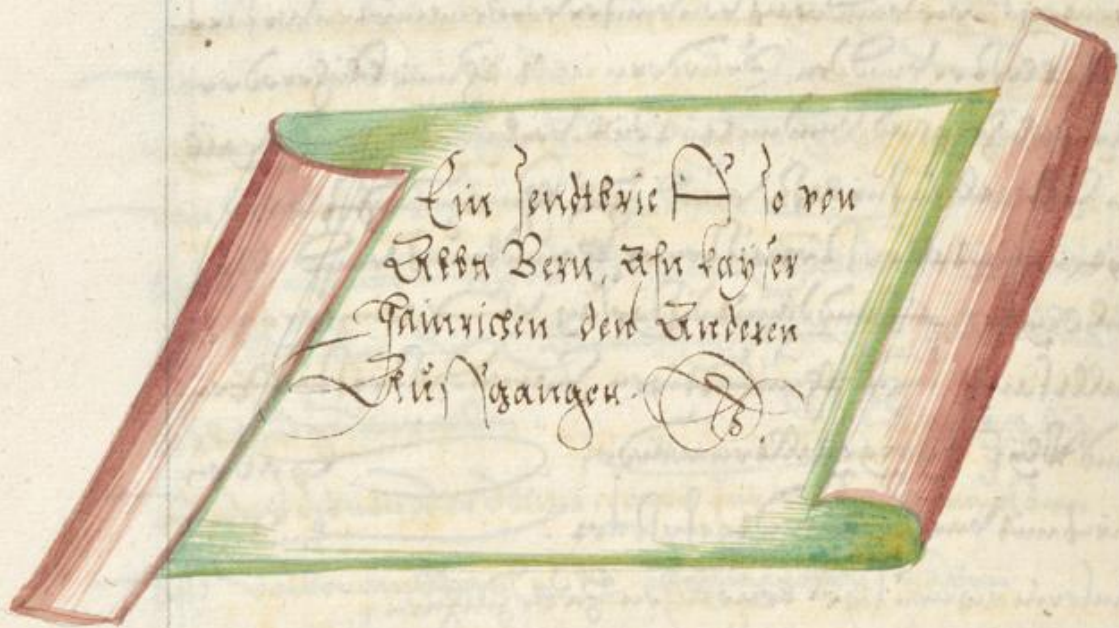 Ein sendtbrieff so von
Abbt Bern, Ahn kayser
Hainrichen den Anderen
Außgangen